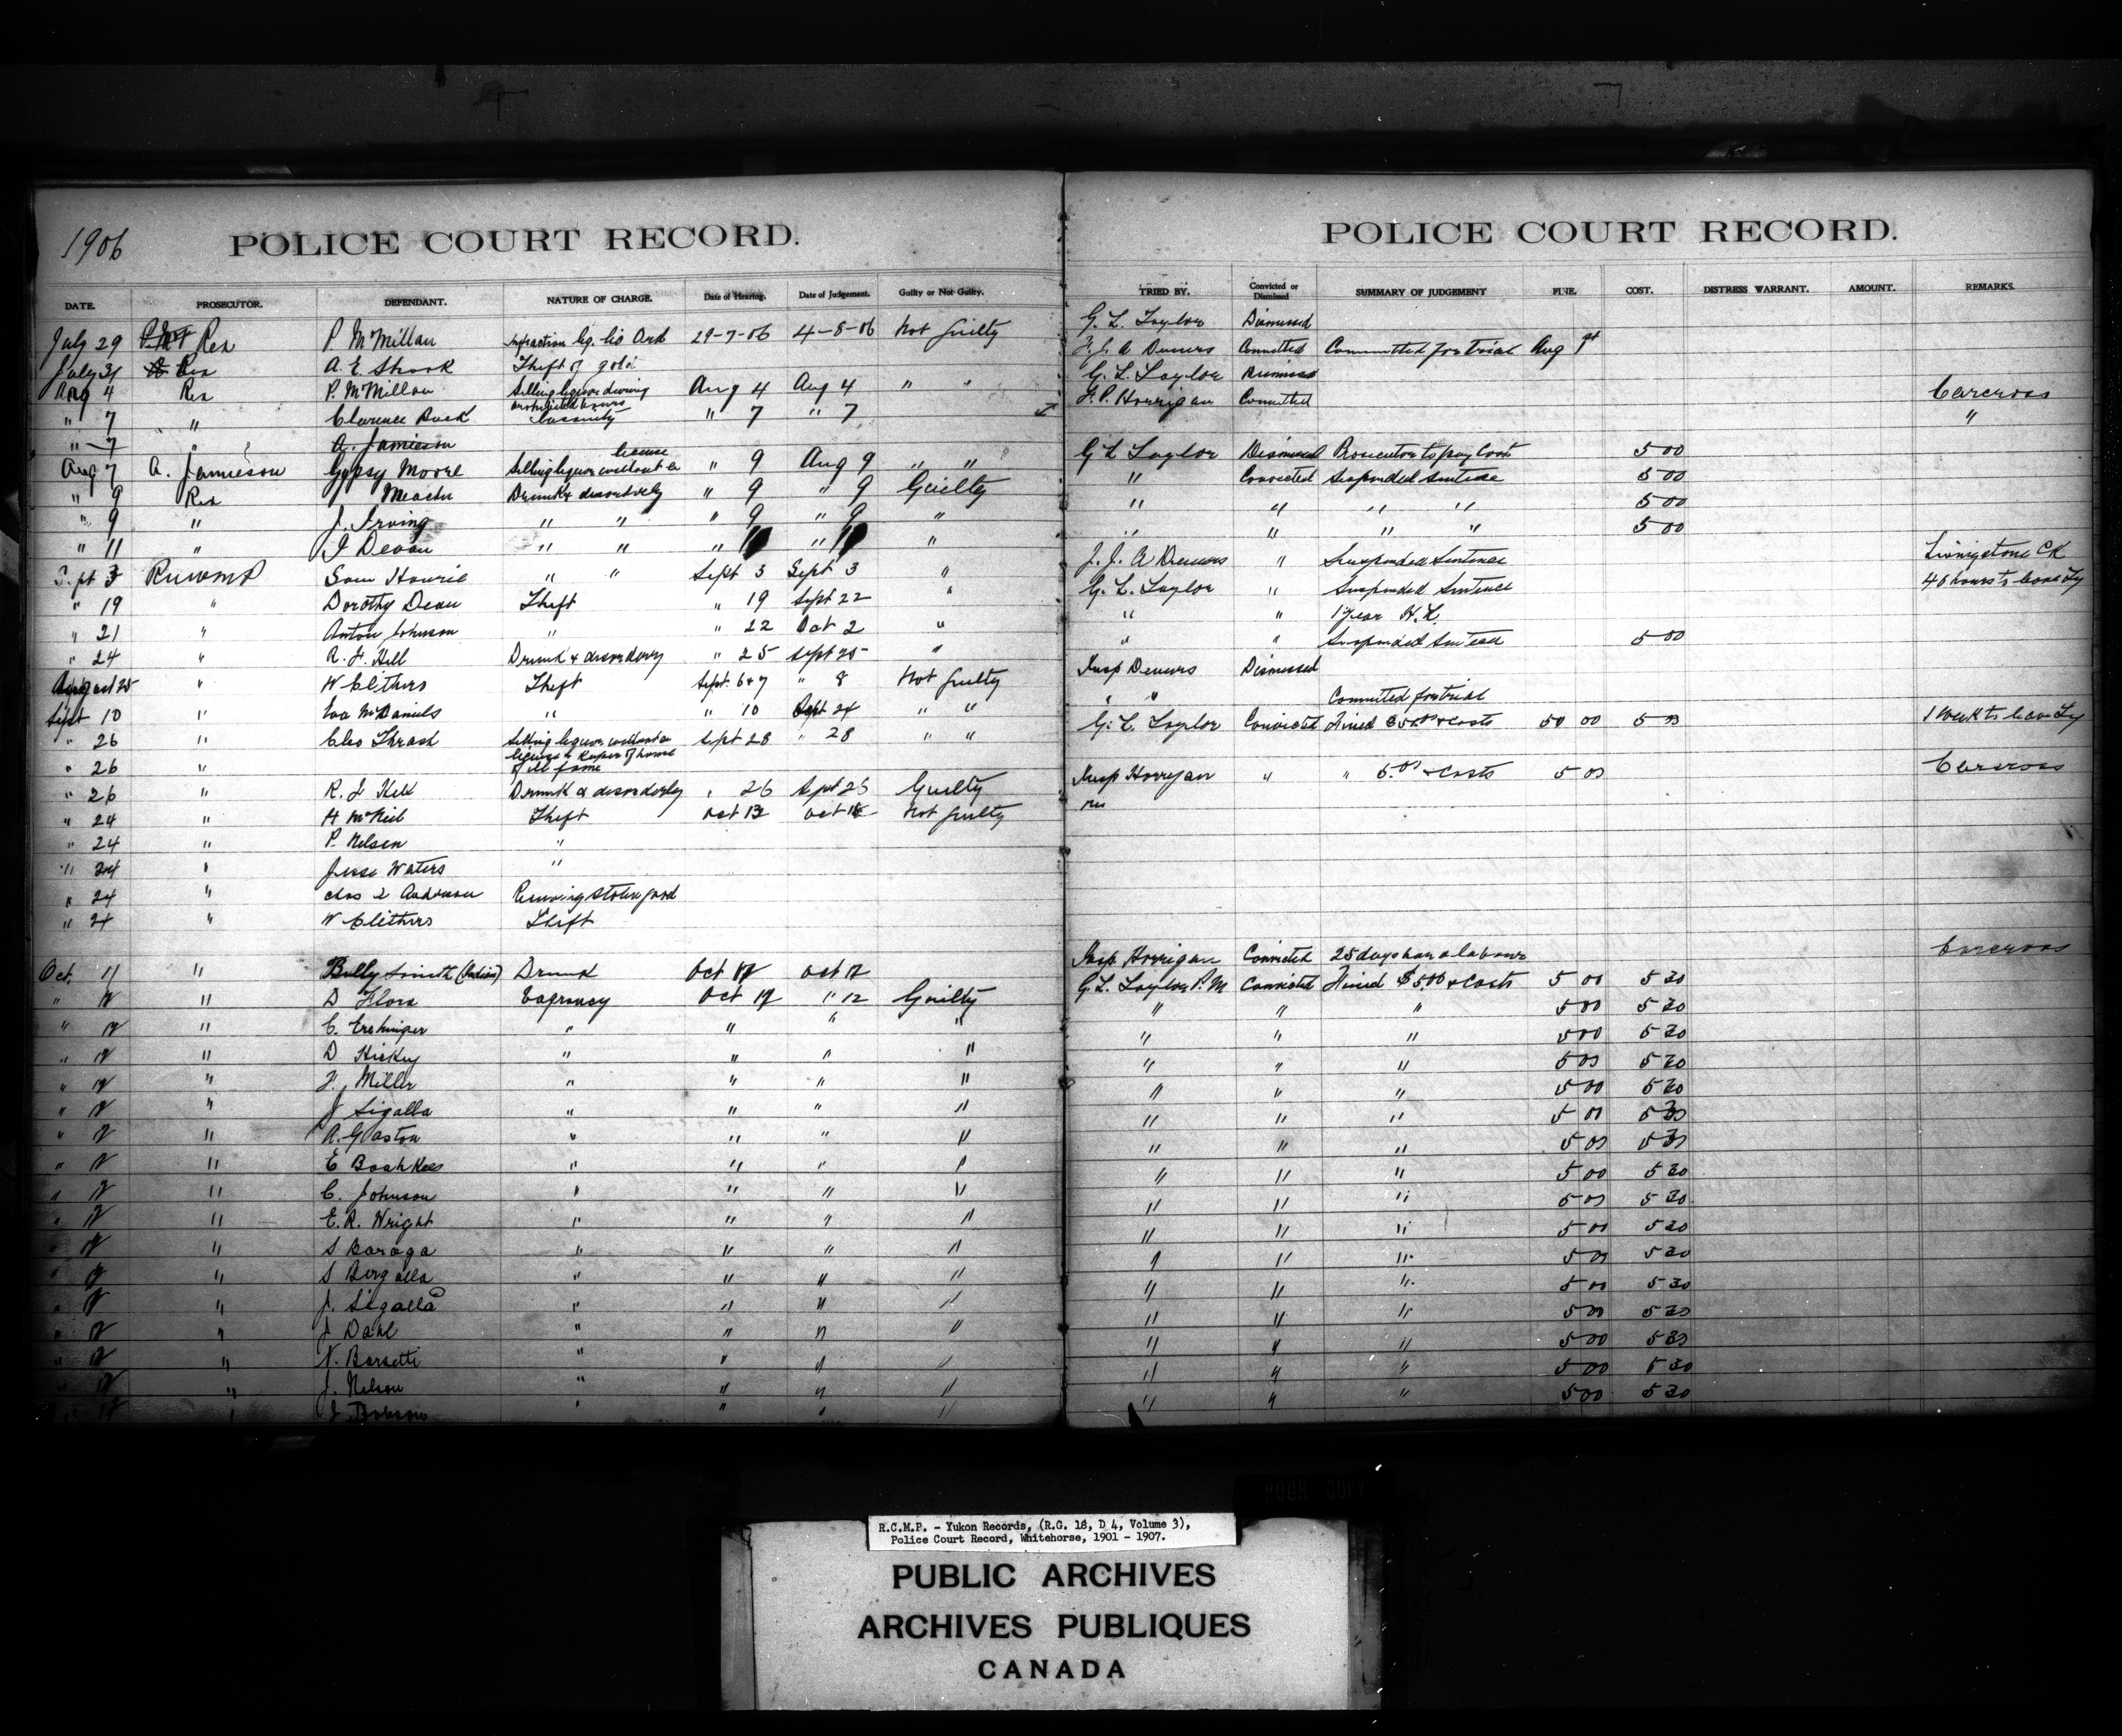 1906
POLICE COURT RECORD.
DATE. PROSECUTOR. DEFENDANT. NATURE OF CHARGE. Date of Hearing. Date of Judgement. Guilty or Not Guilty.
July 29 Rex P. McMillan Infraction liq. lic Ord 29-7-06 4-8-06 Not guilty
July 31 Rex A. E. Shook Theft of gold
Aug 4 Rex P. McMillan Selling liquor during prohibited hours Aug 4 Aug 4 " "
" 7 " Clarence Buck " 7 " 7
" 7 " A. Jamieson
Aug 7 A. Jamieson Gypsy Moore Selling liquor without a license " 9 Aug 9 " "
" 9 Rex Meacher Drunk & disorderly " 9 " 9 Guilty
" 9 " J. Irving " " " 9 " 9 "
" 11 " J Devan " " " 11 " 11 "
Sept 3 RNWMP Sam Howrie " " Sept 3 Sept 3 "
" 19 " Dorothy Dean Theft " 19 Sept 22 "
" 21 " Anton Johnson " " 22 Oct 2 "
" 24 " R. J. Hill Drunk & disorderly " 25 Sept 25 "
August 25 " W Clithers Theft Sept. 6 & 7 " 8 Not guilty
Sept 10 " Eva McDaniels " " 10 Sept 24 " "
" 26 " Cleo Thrash Selling liquor without a license & keeper of house of ill fame Sept 28 " 28 " "
" 26 "
" 26 " R. J Hill Drunk & disorderly " 26 Sept 26 Guilty
" 24 " H McNeil Theft Oct 13 Oct Not guilty
" 24 " P. Nelson "
" 24 " Jesse Waters "
" 24 " Chas Anderson Receiving stolen good
" 24 " W Clithers Theft
Oct. 11 " Billy Smith (Indian) Drunk Oct 12 Oct 12
" 12 " D Flora Vagrancy Oct 12 " 12 Guilty
" 12 " C. " " " "
" 12 " D Hickey " " " "
" 12 " F. Miller " " " "
" 12 " J Sigalla " " " "
" 12 " A. Gaston " " " "
" 12 " E " " " "
" 12 " C. Johnson " " " "
" 12 " E. R. Wright " " " "
" 12 " S Baraga " " " "
" 12 " S " " " "
" 12 " J. Sigalla " " " "
" 12 " J Dahl " " " "
" 12 " N. Barsetti " " " "
" 12 " J. Nelson " " " "
" 12 " J. Dobson " " " "
POLICE COURT RECORD.
TRIED BY. Convicted or Dismissed SUMMARY OF JUDGEMENT FINE. COST. DISTRESS WARRANT. AMOUNT. REMARKS.
G. L. Taylor Dismissed
F. J. A Demers Committed Committed for trial Aug 1st
G. L. Taylor Dismissed
F. P. Horrigan Committed Carcross
"
G L Taylor Dismissed Prosecutor to pay Costs 5 00
" Convicted Suspended Sentence 5 00
" " " " 5 00
" " " " 5 00
F. J. A Demers " Suspended Sentence Livingstone Ck
G. L. Taylor " Suspended Sentence 48 hours to leave Ty
" " 1 year H. L.
" " Suspended Sentence 5 00
Insp Demers Dismissed
" " Committed for trial
G. L. Taylor Convicted Fined $50.00 & costs 50 00 5 00 1 Week to leave Ty
Insp Horrigan " " 5.00 & costs 5 00 Carcross
Insp Horrigan Convicted 25 days hard labour Carcross
G. L. Taylor P. M Convicted Fined $5.00 & costs 5 00 5 30
" " " 5 00 5 30
" " " 5 00 5 30
" " " 5 00 5 30
" " " 5 00 5 30
" " " 5 00 5 30
" " " 5 00 5 30
" " " 5 00 5 30
" " " 5 00 5 30
" " " 5 00 5 30
" " " 5 00 5 30
" " " 5 00 5 30
" " " 5 00 5 30
" " " 5 00 5 30
" " " 5 00 5 30
" " " 5 00 5 30
R.C.M.P. - Yukon Records, (R.G. 18, D 4, Volume 3),
Police Court Record, Whitehorse, 1901 - 1907.
PUBLIC ARCHIVES
ARCHIVES PUBLIQUES
CANADA